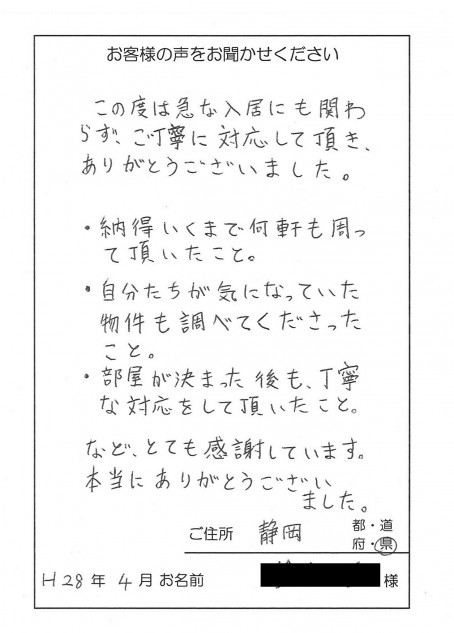 お客様の声をお聞かせください
この度は急な入居にも関わ
らず、ご丁寧に対応して頂き、
ありがとうございました。
・納得いくまで何軒も周っ
て頂いたこと。
・自分たちが気になっていた
物件も調べてくださった
こと。
・部屋が決まった後も、丁寧
な対応をして頂いたこと。
など、とても感謝しています。
本当にありがとうござい
ました。
ご住所 静岡 都・道
府・県
H28年 4月 お名前 様